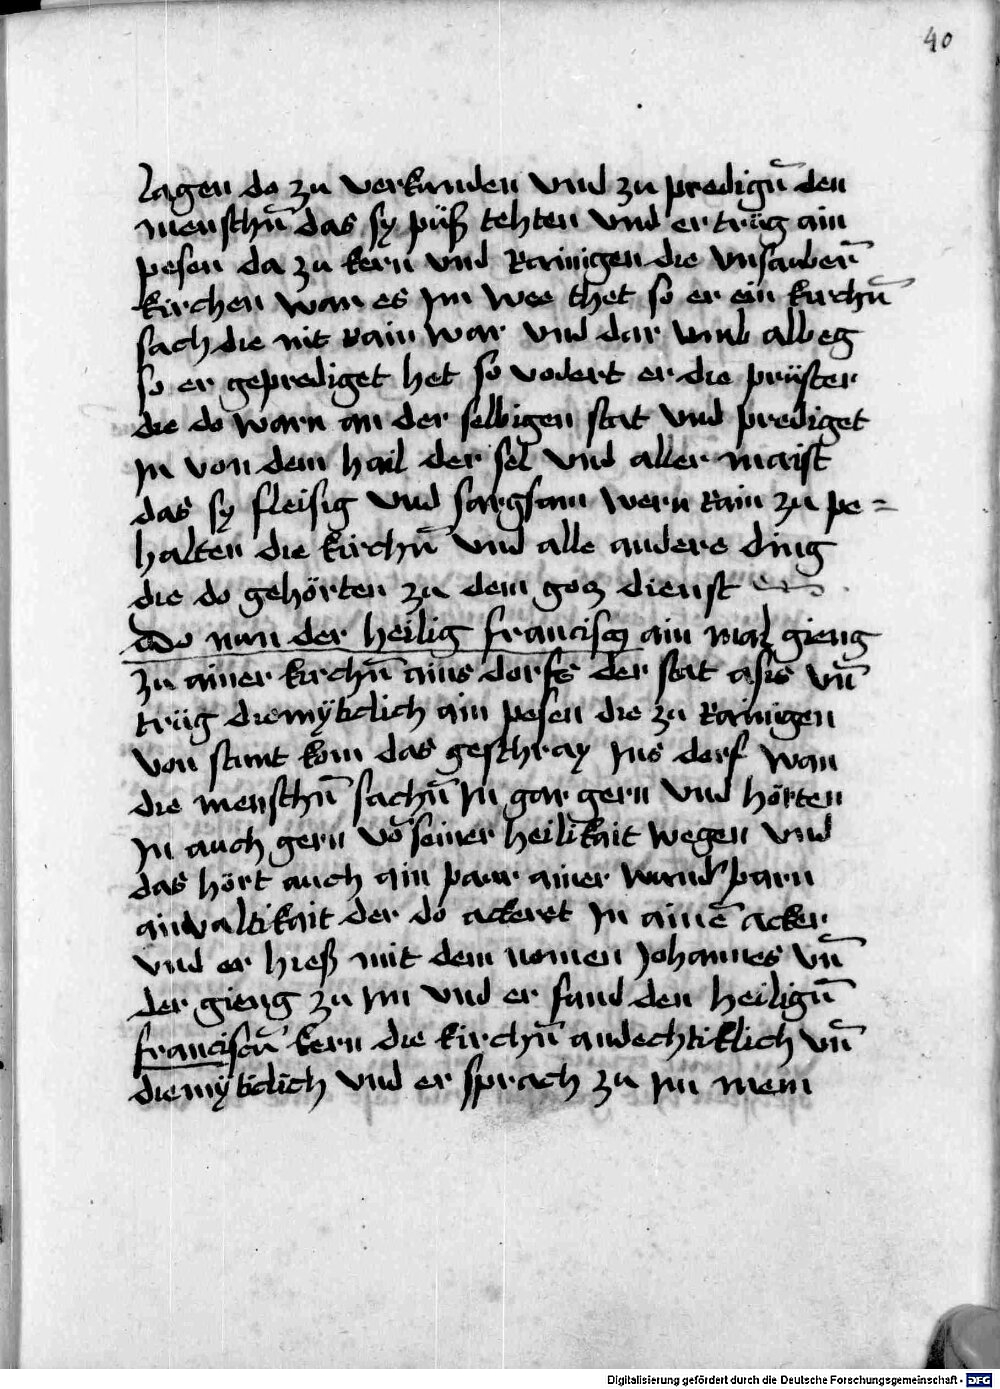 40
lagen do zu verkunden vnd zu predigñ den
menschñ das sy püß tehten vnd er trüg ain
pesen da zu kern vnd Rainigen die vnsauberñ
kirchen wan es Im wee thet so er ein kirchñ
sach die nit Rain war vnd dar vmb albeg
so er geprediget het so vodert er die prüster
die do warn an der selbigen stat vnd prediget
In von dem hail der sel vnd aller maist
das sy fleisig vnd sargsam wern Rain zu pe=
halten die kirchñ vnd alle andere ding
die do gehörten zu dem gocz dienst
Do nun der heilig franciscq ain malz gieng
zu ainer kirchñ ains dorfs der stat asis vñ
trüg diemÿticlich ain pesen die zu Rainigen
von stunt kom das geschray Ins dorf wan
die menschñ sachñ In gar gern vnd hörten
In auch gern võ seiner heilikait wegen vnd
das hört auch ain paur ainer wundsparn
ainvaltikait der do ackeret In ainẽ acker
vnd er hieß mit dem nomen Johannes vñ
der gieng zu Im vnd er fand den heiligñ
franciscũ kern die kirchñ andechtiklich vñ
diemÿticlich vnd er sprach zu Im mein
Digitalisierung gefördert durch die Deutsche Forschungsgemeinschaft - DFG